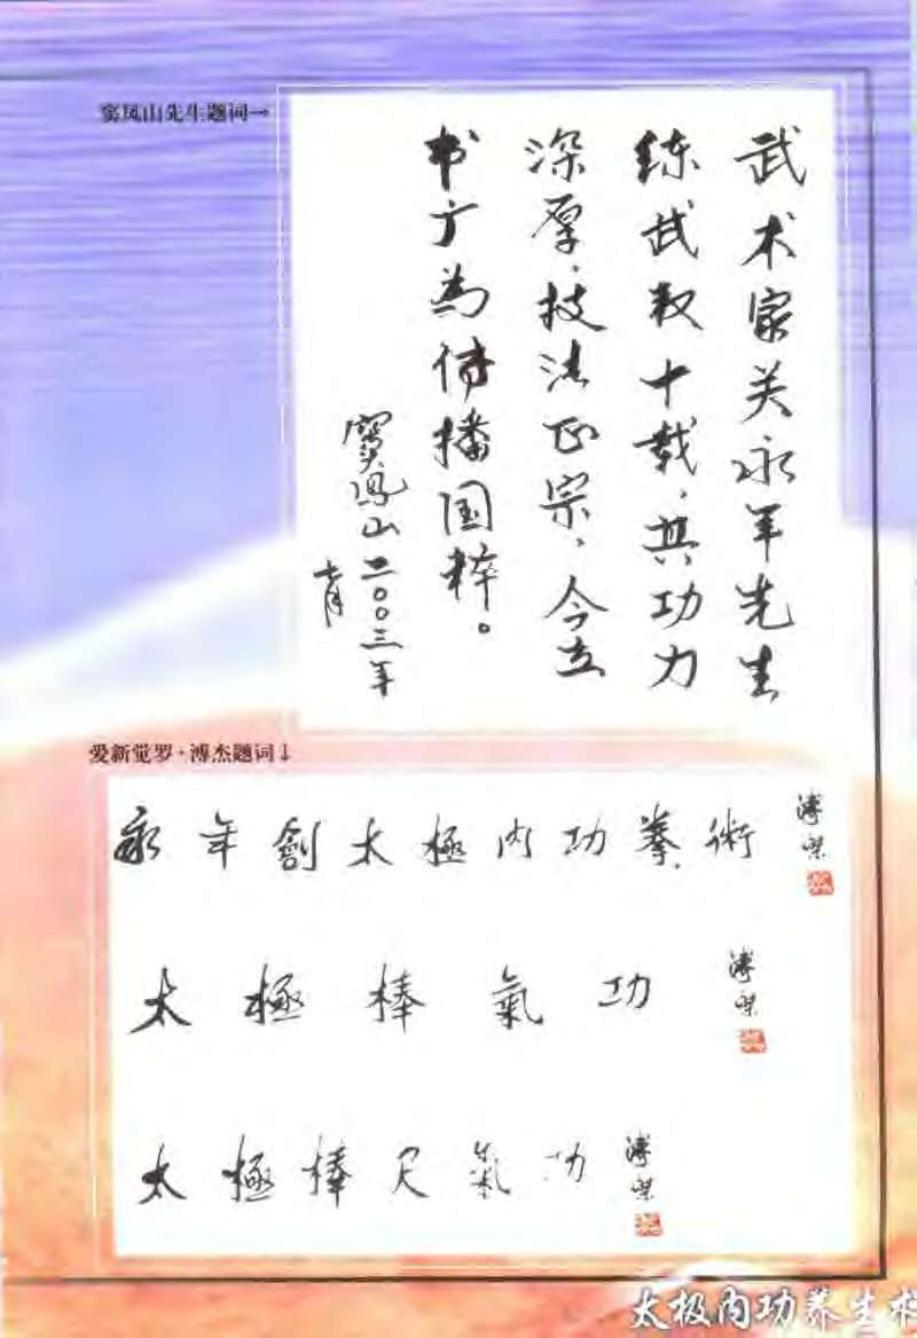 窦凤山先生题词→
武术家关永年先生
练武数十载，其功力
深厚，技法正宗，今立
书广为传播国粹。
窦凤山二〇〇三年
七月
爱新觉罗·溥杰题词↓
永年創太極内功拳術
溥傑
太極棒氣功
溥傑
太極棒尺氣功
溥傑
太极内功养生术